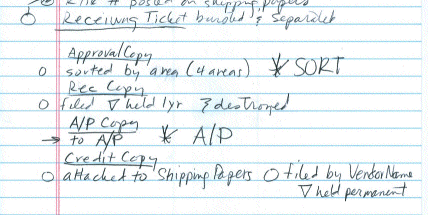 posted on shipping papers
Receiving Ticket bundled & Separated
Approval Copy
sorted by area (4 areas) * SORT
Rec Copy
filed ▽ held 1yr & destroyed
A/P Copy
→ to A/P * A/P
Credit Copy
attached to Shipping Papers O filed by Vendor Name
▽ held permanent